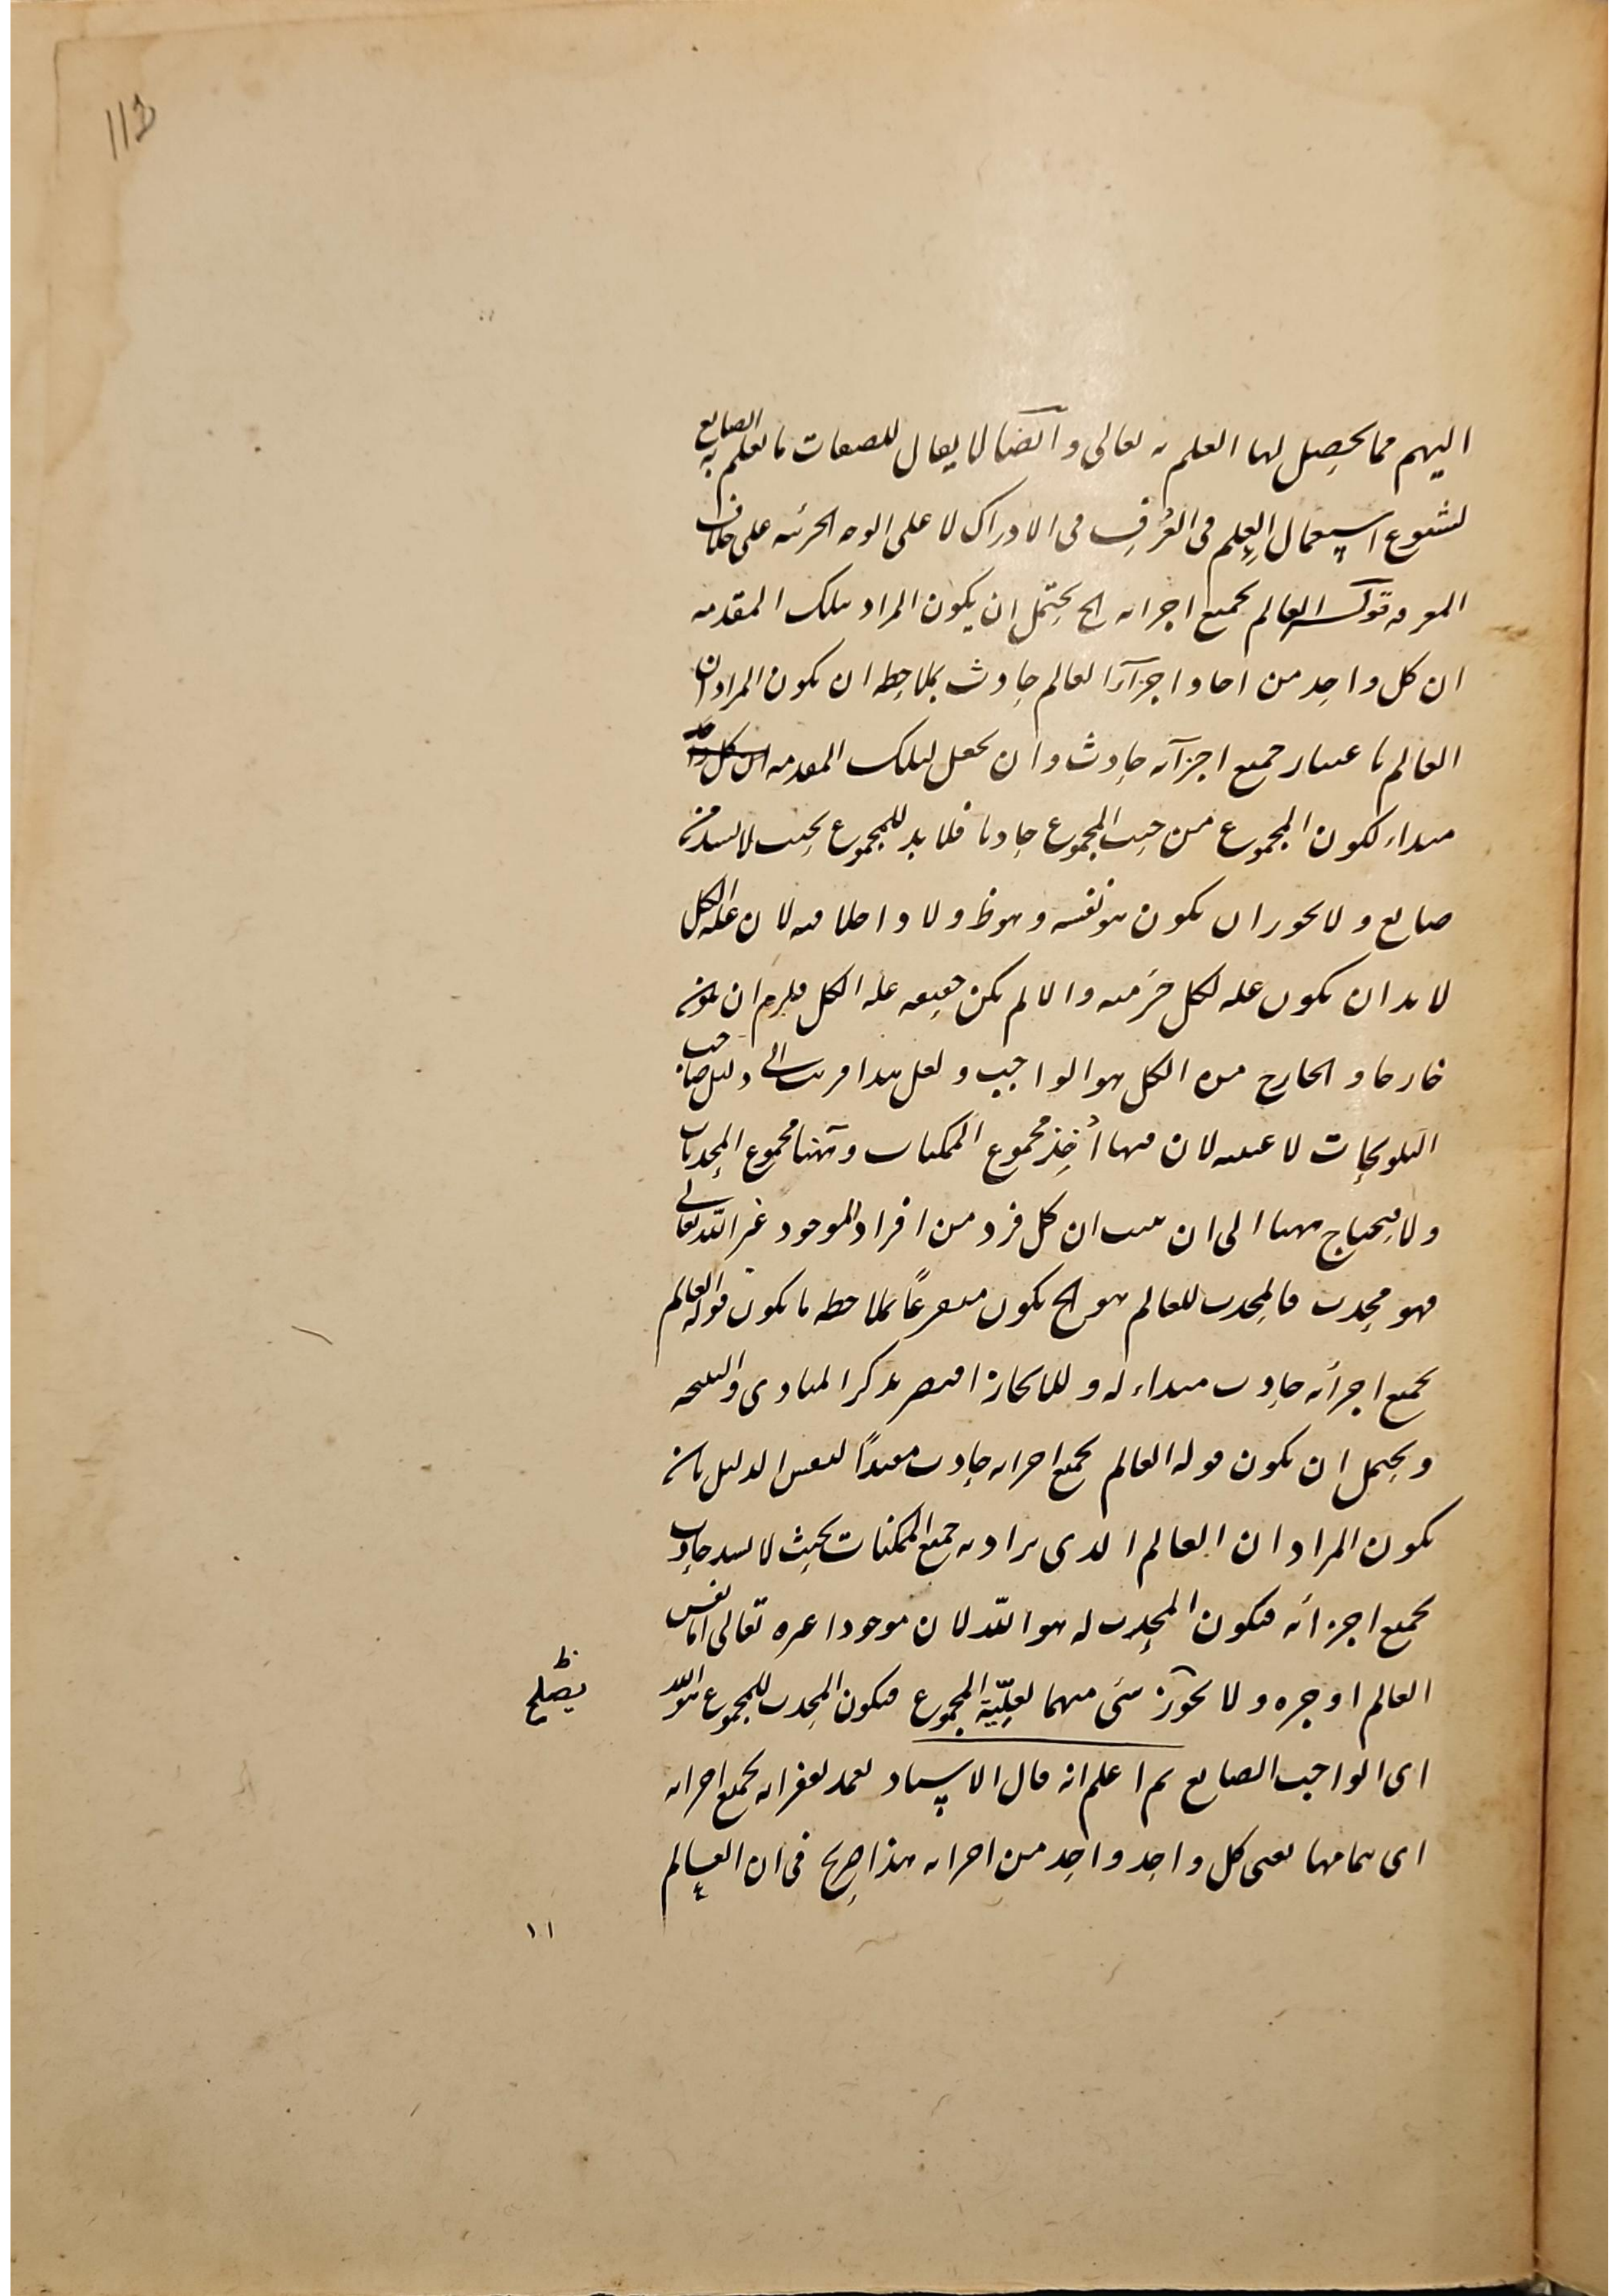 113
اليهم مما يحصل لها العلم به تعالى وايضا لا يقال للصفات ما يعلم به الصانع
لشيوع استعمال العلم في العرف في الادراك لا على الوجه الجزئيه على خلاف
المعرفه قوله العالم بجميع اجزائه الخ يحتمل ان يكون المراد بتلك المقدمه
ان كل واحد من احاد اجزآء العالم حادث بملاحظه ان يكون المراد ان
العالم باعتبار جميع اجزآئه حادث وان يجعل لتلك المقدمه ان كل واحد
مبداء لكون المجموع من حيث المجموع حادثا فلا بد للمجموع بحيث لا يشذ منه
صانع ولا يجوز ان يكون هو نفسه وهو ظ ولا داخلا فيه لان عله الكل
لا بد ان يكون عله لكل جزء منه والا لم يكن جميعه عله الكل فلزم ان يكون
خارجا والخارج من الكل هو الواجب ولعل هذا قريب الى دليل صاحب
التلويحات لا عينه لان فيها أُخذ مجموع الممكنات وههنا مجموع المحدثات
ولا يحتاج ههنا الى ان يثبت ان كل فرد من افراد الموجود غير الله تعالى
فهو محدث فالمحدث للعالم هو الخ يكون متفرعاً بملاحظه ما يكون قوله العالم
بجميع اجزائه حادث مبداء له وللايجاز اقتصر بذكر المبادى والنتيجه
ويحتمل ان يكون قوله العالم بجميع اجزائه حادث مفيداً لنفس الدليل بان
يكون المراد ان العالم الذى يراد به جميع الممكنات بحيث لا يشذ حادث
بجميع اجزائه فيكون المحدث له هو الله لان موجودا غيره تعالى اما نفس
العالم او جزءه ولا يجوز شئ منهما لعلّيّة المجموع فيكون المحدث للمجموع هو الله
يصلح ظ
اى الواجب الصانع ثم اعلم انه قال الاستاد تغمد بغفرانه بجميع اجزائه
اى تمامها يعنى كل واحد واحد من اجزائه هذا صريح في ان العالم
١١